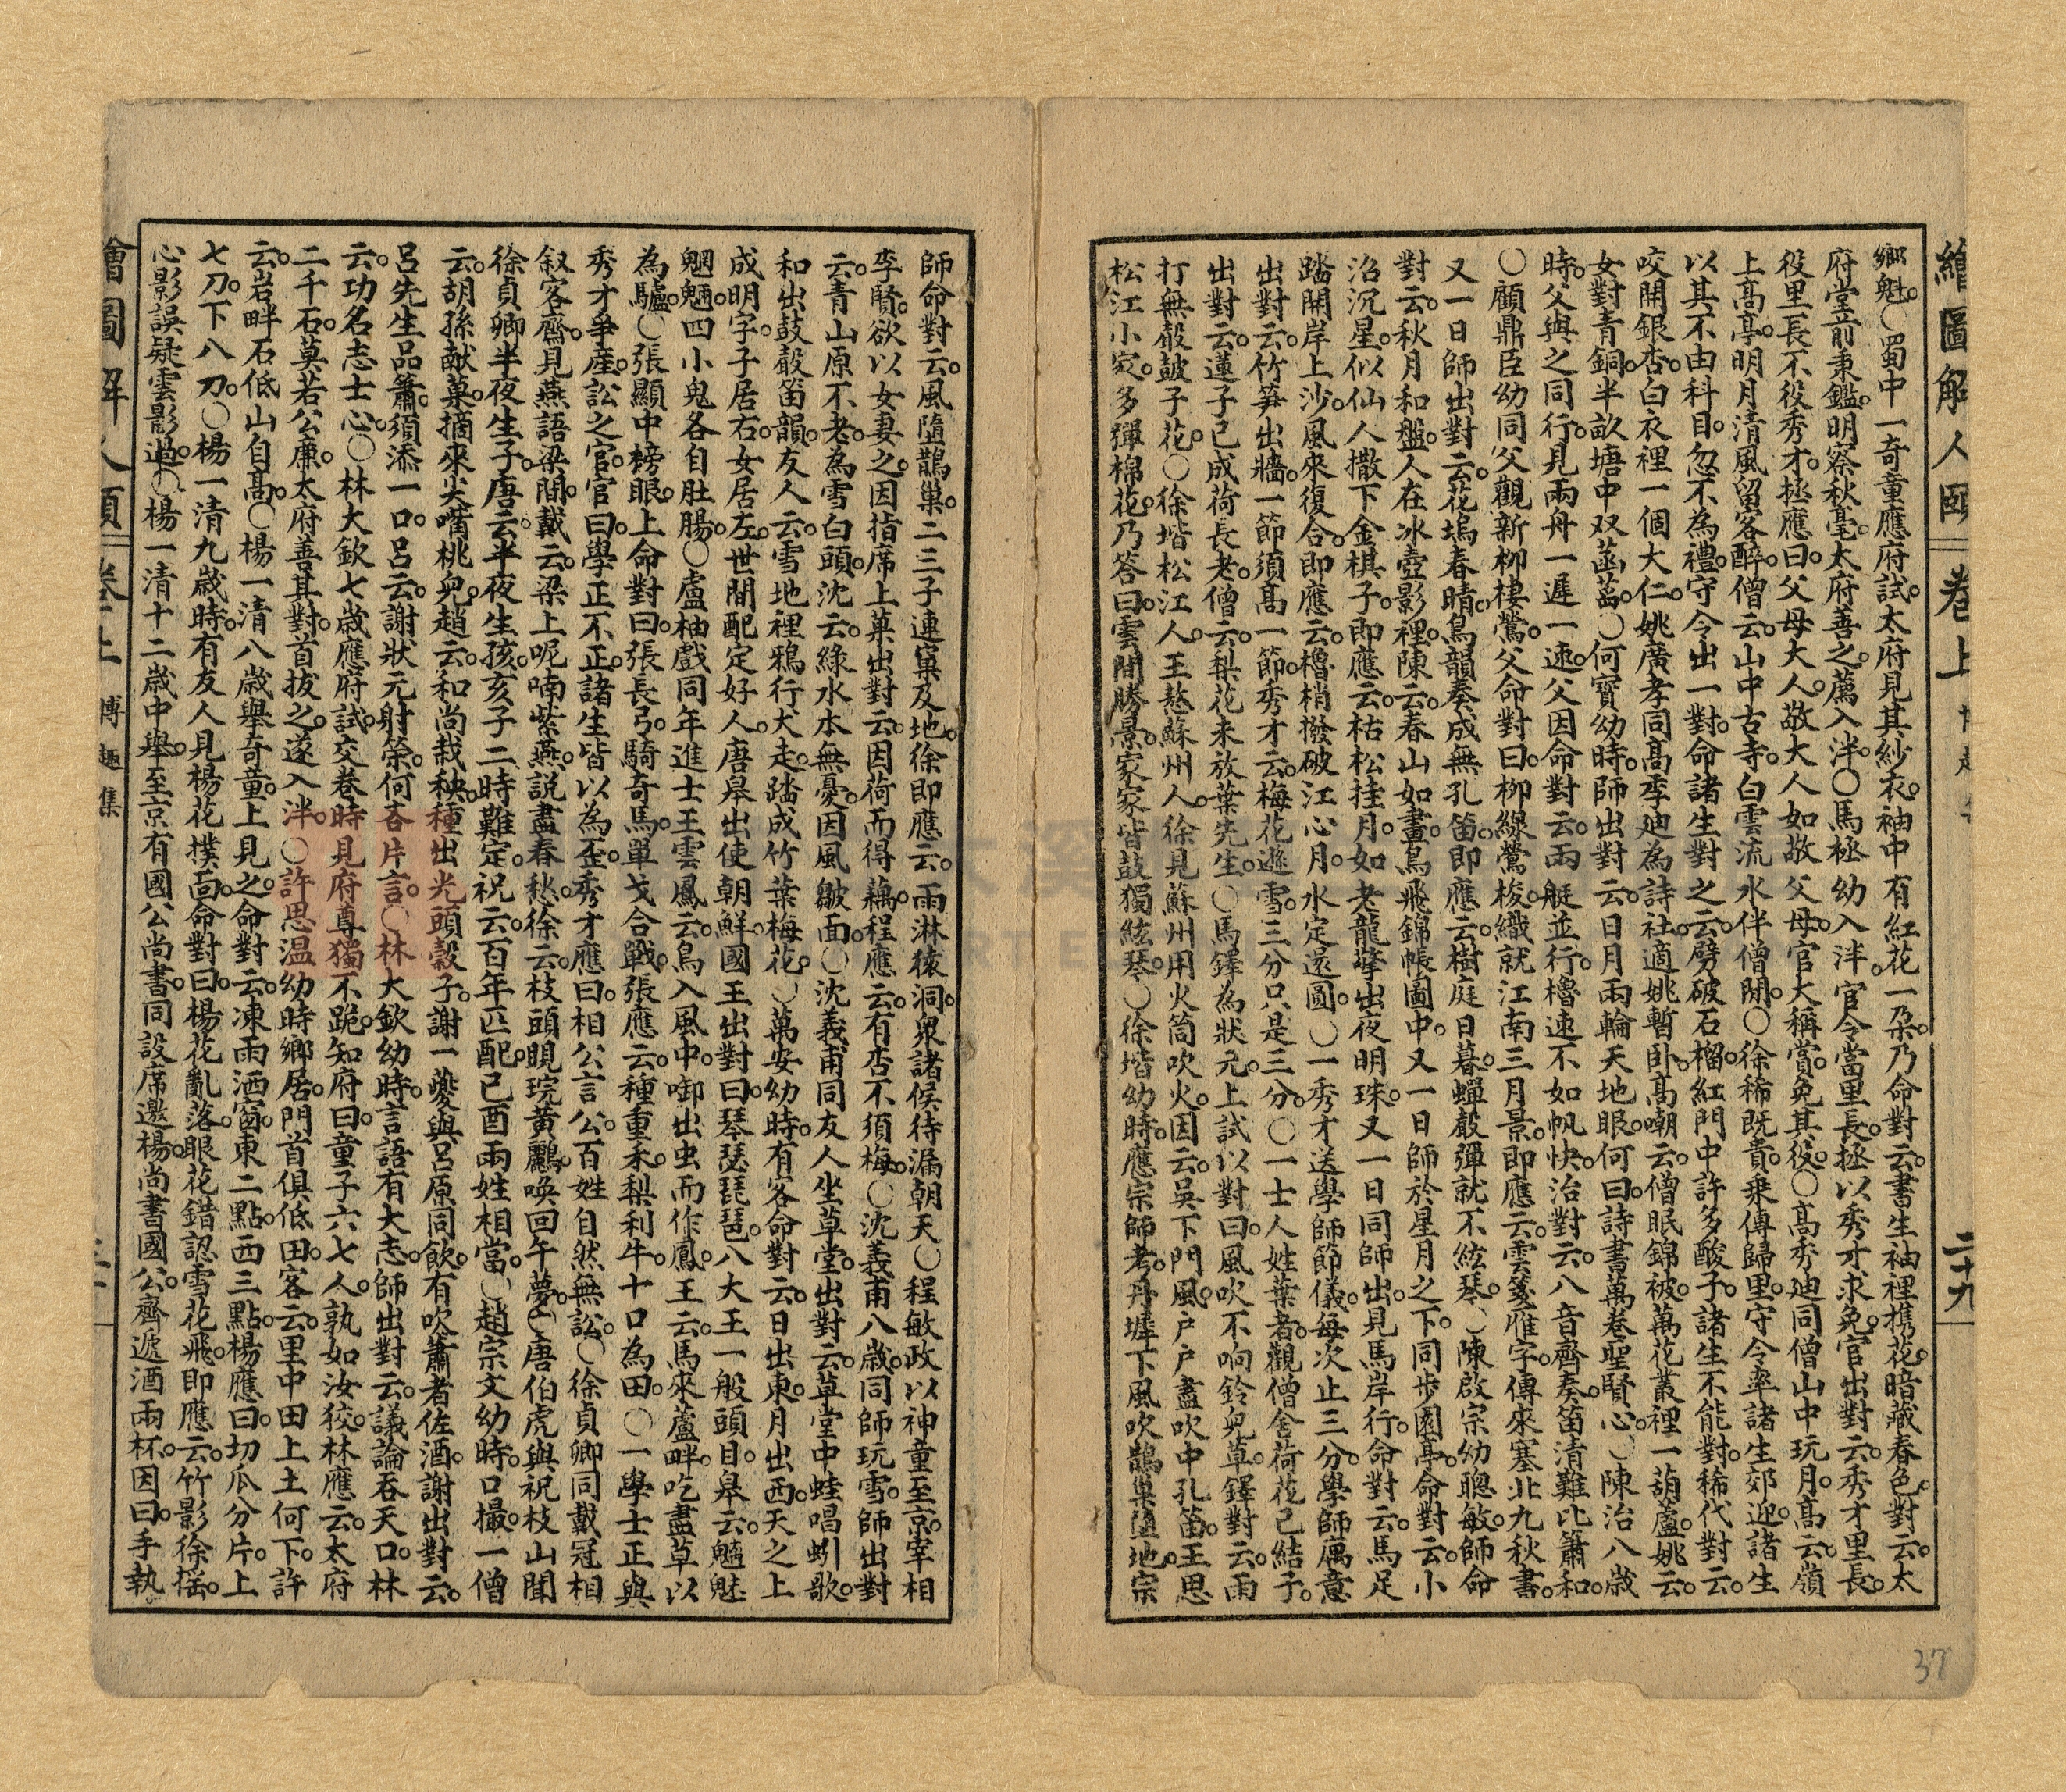 繪圖解人頤 卷上 二十九
鄉魁。○蜀中一奇童應府試。太府見其紗衣。袖中有紅花一朶。乃命對云。書生袖裡携花。暗藏春色。對云。太
府堂前秉鑑。明察秋毫。太府善之。薦入泮。○馬拯幼入泮。官令當里長。拯以秀才求免。官出對云。秀才里長。
役里長不役秀才。拯應曰。父母大人。敬大人如敬父母。官大稱賞。免其役。○高秀迪同僧山中玩月。高云。嶺
上高亭。明月清風留客醉。僧云。山中古寺。白雲流水伴僧閒。○徐稀既貴。乗傳歸里。守令率諸生郊迎。諸生
以其不由科目。忽不為禮。守令出一對。命諸生對之。云。劈破石榴。紅門中許多酸子。諸生不能對。稀代對云。
咬開銀杏。白衣裡一個大仁。姚廣孝同高季廸為詩社。適姚暫卧。高嘲云。僧眠錦被。萬花叢裡一葫蘆。姚云。
女對青銅。半畝塘中双菡萏。○何寶幼時。師出對云。日月兩輪天地眼。何曰。詩書萬卷聖賢心。○陳治八歲
時。父與之同行。見兩舟一遲一速。父因命對云。兩艇並行。櫓速不如帆快。治對云。八音齊奏。笛清難比簫和。
○顧鼎臣幼同父觀新柳棲鶯。父命對曰。柳線鶯梭。織就江南三月景。即應云。雲箋雁字。傳來塞北九秋書。
又一日師出對云。花塢春晴。鳥韻奏成無孔笛。即應云。樹庭日暮。蟬聲彈就不絃琴。○陳啟宗幼聰敏。師命
對云。秋月和盤。人在冰壺影裡。陳云。春山如畫。鳥飛錦帳圖中。又一日師於星月之下。同步園亭。命對云。小
沼沉星。似仙人撒下金棋子。即應云。枯松挂月。如老龍擎出夜明珠。又一日同師出見馬岸行。命對云。馬足
踏開岸上沙。風來復合。即應云。櫓梢撥破江心月。水定還圓。○一秀才送學師節儀。每次止三分。學師厲意
出對云。竹笋出牆。一節須高一節。秀才云。梅花遜雪。三分只是三分。○一士人姓葉者。觀僧舍荷花已結子。
出對云。蓮子已成荷長老。僧云。梨花未放葉先生。○馬鐸為狀元。上試以對曰。風吹不响鈴兒草。鐸對云。雨
打無聲皷子花。○徐堦松江人。王愸蘇州人。徐見蘇州用火筒吹火。因云。吳下門風。户户盡吹中孔笛。王思
松江小家。多彈棉花。乃答曰。雲間勝景。家家皆鼓獨絃琴。○徐堦幼時。應宗師考。丹墀下風吹鵲巢墮地。宗
師命對云。風隨鵲巢。二三子連窠及地。徐即應云。雨淋猿洞。衆諸侯待漏朝天。○程敏政以神童至京。宰相
李賢。欲以女妻之。因指席上菓出對云。因荷而得藕。程應云。有杏不須梅。○沈義甫八歲。同師玩雪。師出對
云。青山原不老。為雪白頭。沈云。綠水本無憂。因風皺面。○沈義甫同友人坐草堂。出對云。草堂中蛙唱蚓歌。
和出鼓聲笛韻。友人云。雪地裡鴉行犬走。踏成竹葉梅花。○萬安幼時。有客命對云。日出東。月出西。天之上
成明字。子居右。女居左。世間配定好人。唐皋出使朝鮮。國王出對曰。琴瑟琵琶。八大王一般頭目。皋云。魑魅
魍魎。四小鬼各自肚腸。○盧柚戲同年進士王雲鳳云。鳥入風中。啣出虫而作鳳。王云。馬來蘆畔。吃盡草以
為驢。○張顯中榜眼。上命對曰。張長弓。騎奇馬。單戈合戰。張應云。種重禾。梨利牛。十口為田。○一學士正與
秀才爭産。訟之官。官曰。學正不正。諸生皆以為歪。秀才應曰。相公言公。百姓自然無訟。○徐貞卿同戴冠相
叙客齋。見燕語梁間。戴云。梁上呢喃紫燕。説盡春愁。徐云。枝頭睍睆黃鸝。喚回午夢。○唐伯虎與祝枝山聞
徐貞卿半夜生子。唐云。半夜生孩。亥子二時難定。祝云。百年匹配。已酉兩姓相當。○趙宗文幼時。口撮一僧
云。胡孫献菓。摘來尖嘴桃兒。趙云。和尚栽秧。種出光頭穀子。謝一夔與呂原同飲。有吹簫者佐酒。謝出對云。
呂先生品簫。須添一口。呂云。謝狀元射策。何吝片言。○林大欽幼時。言語有大志。師出對云。議論吞天口。林
云。功名志士心。○林大欽七歲應府試。交卷時見府尊獨不跪。知府曰。童子六七人。孰如汝狡。林應云。太府
二千石。莫若公廉。太府善其對。首拔之。遂入泮。○許思温幼時鄉居。門首俱低田。客云。里中田上土何下。許
云。岩畔石低山自高。○楊一清八歲舉奇童。上見之。命對云。凍雨洒窗。東二點。西三點。楊應曰。切瓜分片。上
七刀。下八刀。○楊一清九歲時。有友人見楊花撲面。命對曰。楊花亂落。眼花錯認雪花飛。即應云。竹影徐搖。
心影誤疑雲影過。○楊一清十二歲中舉。至京有國公尚書。同設席邀楊。尚書國公。齊遞酒兩杯。因曰。手執
繪圖解人頤 卷上 博趣集
37